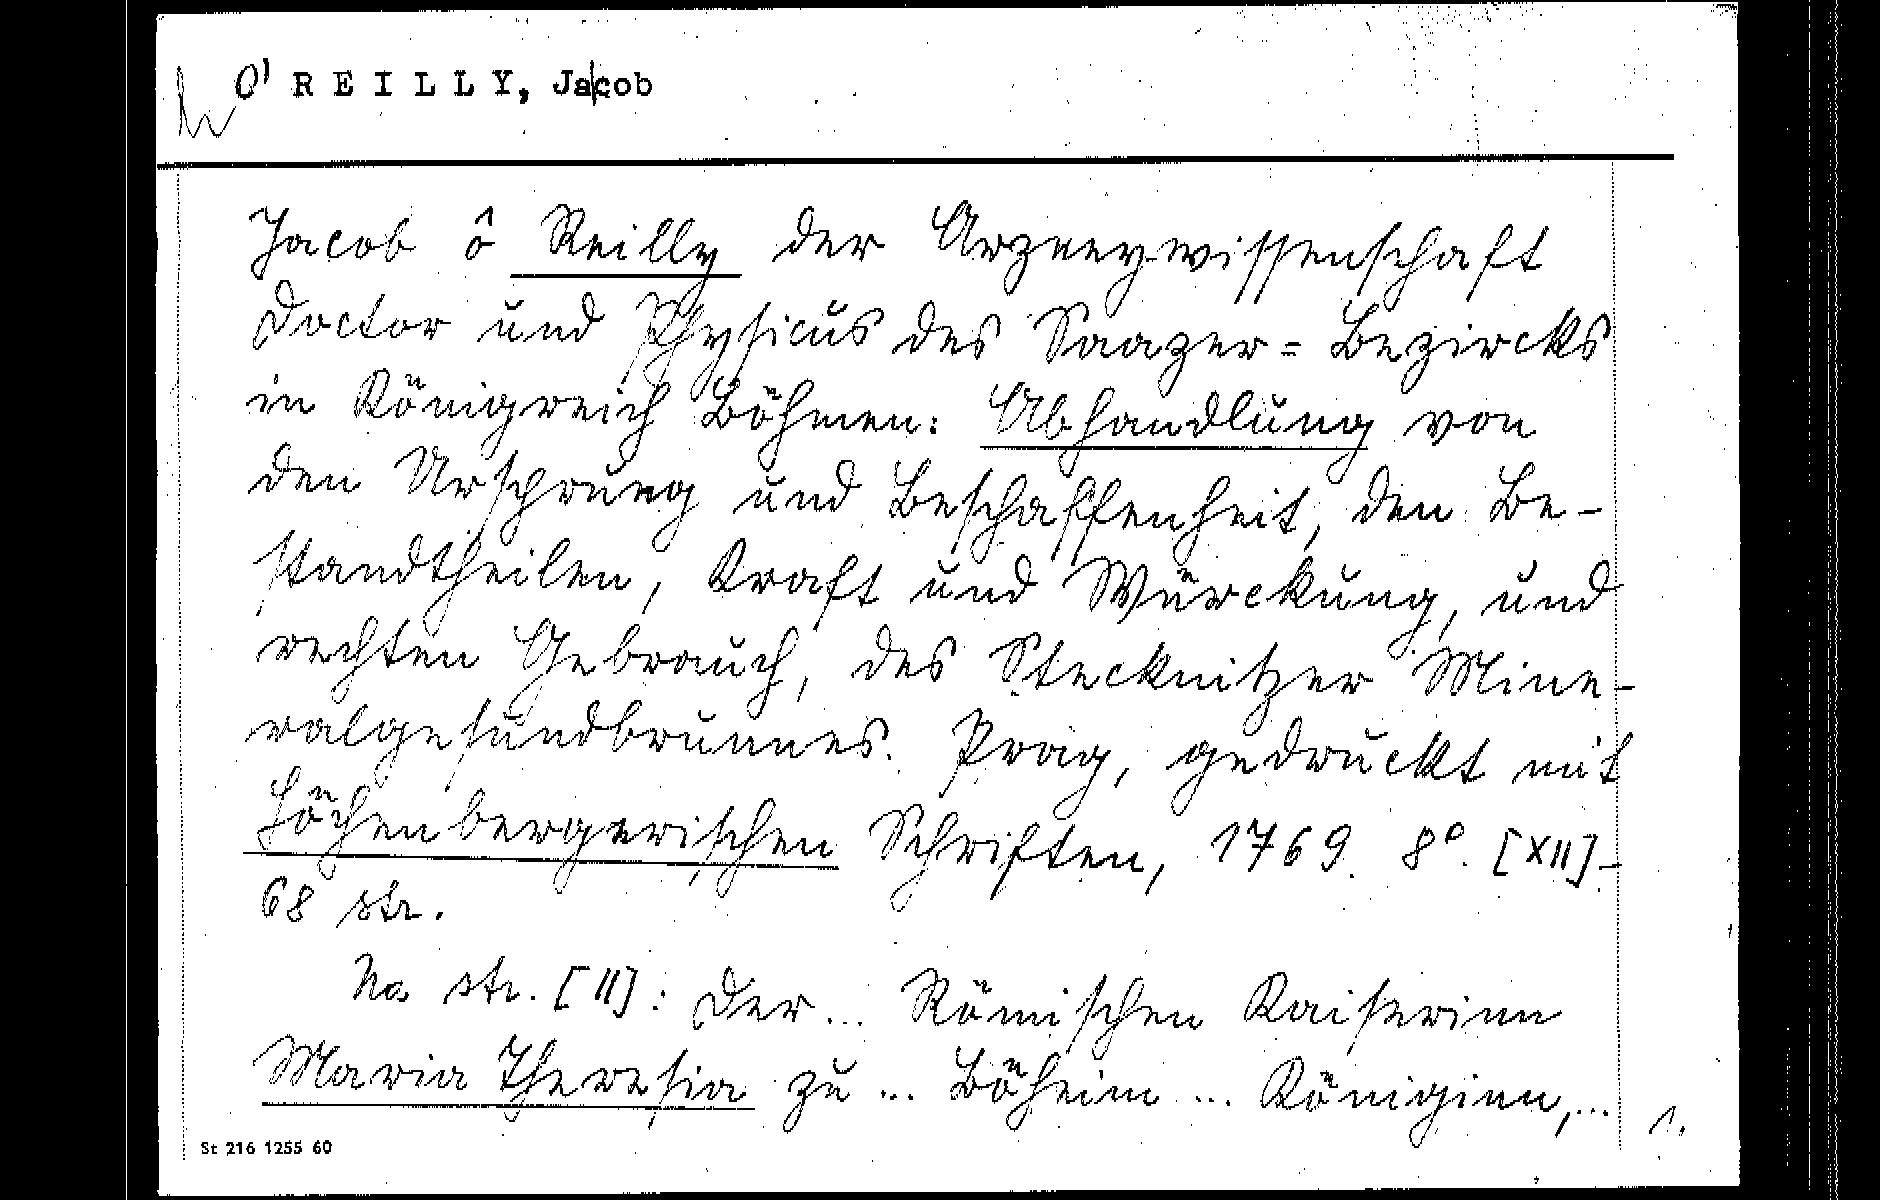 O' R E I L L Y, Jacob
Jacob ô Reilly der Arzneywissenschaft
Doctor und Physicus des Saazer = Bezircks
in Königreich Böhmen: Abhandlung von
den Ursprung und Beschaffenheit, den Be-
standtheilen, Kraft und Würckung, und
rechten Gebrauch, des Stecknitzer Mine-
ralgesundbrunnes. Prag, gedruckt mit
Höchenbergerischen Schriften, 1769. 8°. [XII]-
68 str.
Na str. [II]: Der... Römischen Kaiserinn
Maria Theresia zu ... Böheim ... Königinn,... 1.
St 216 1255 60